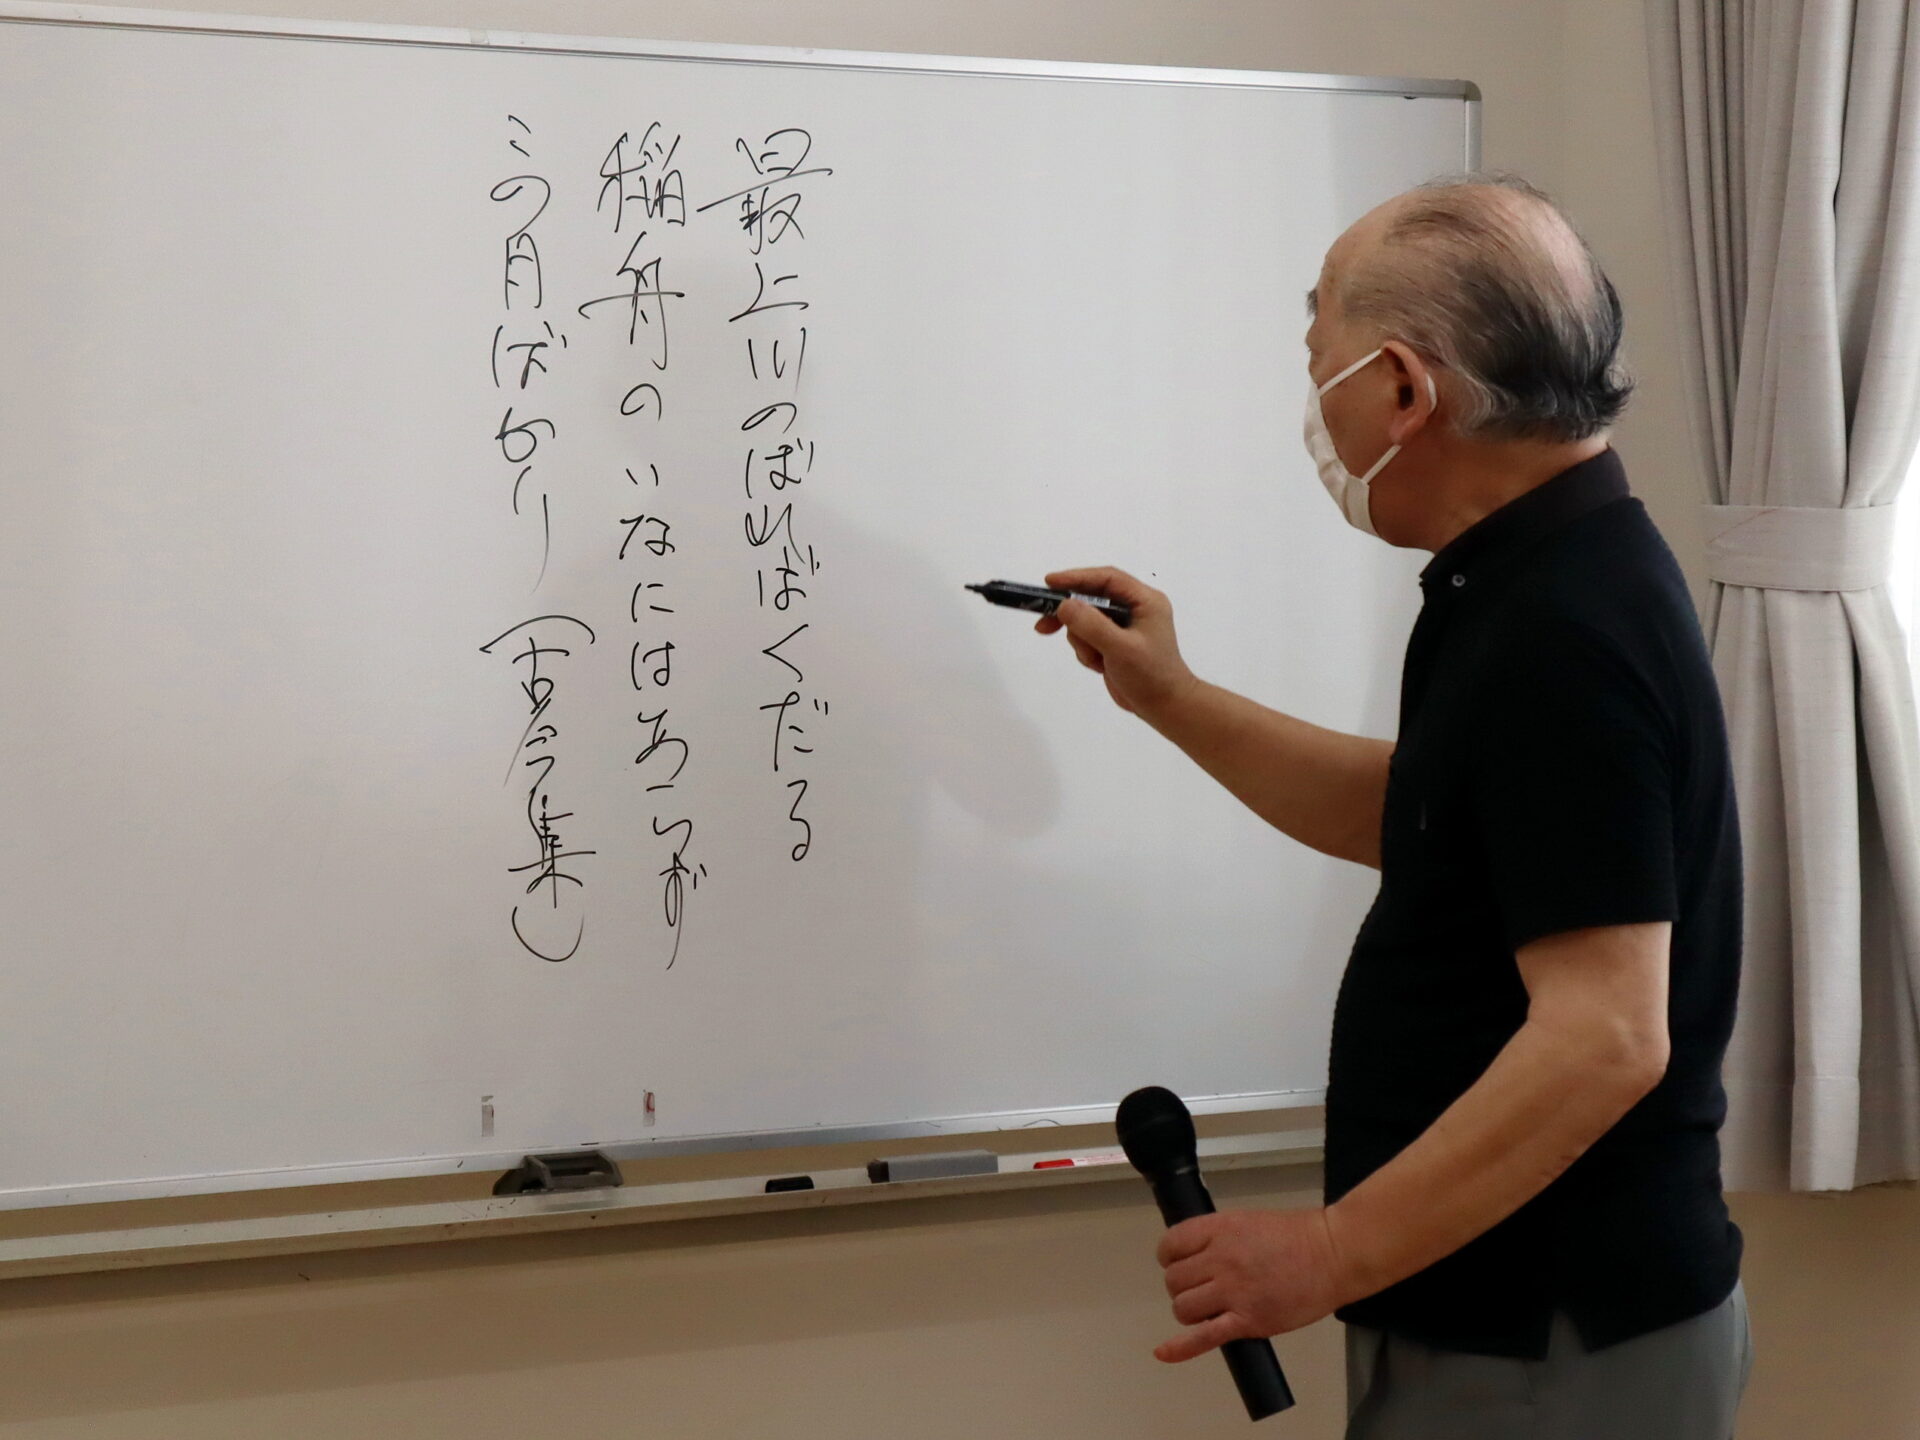 最上川のぼればくだる
稲舟のいなにはあらず
この月ばかり（古今集）